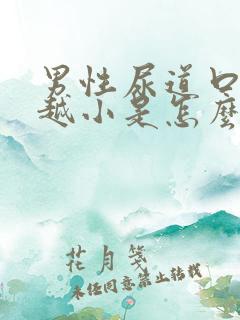 男性尿道口
越小是怎麼
花月箋
未经同意禁止转载